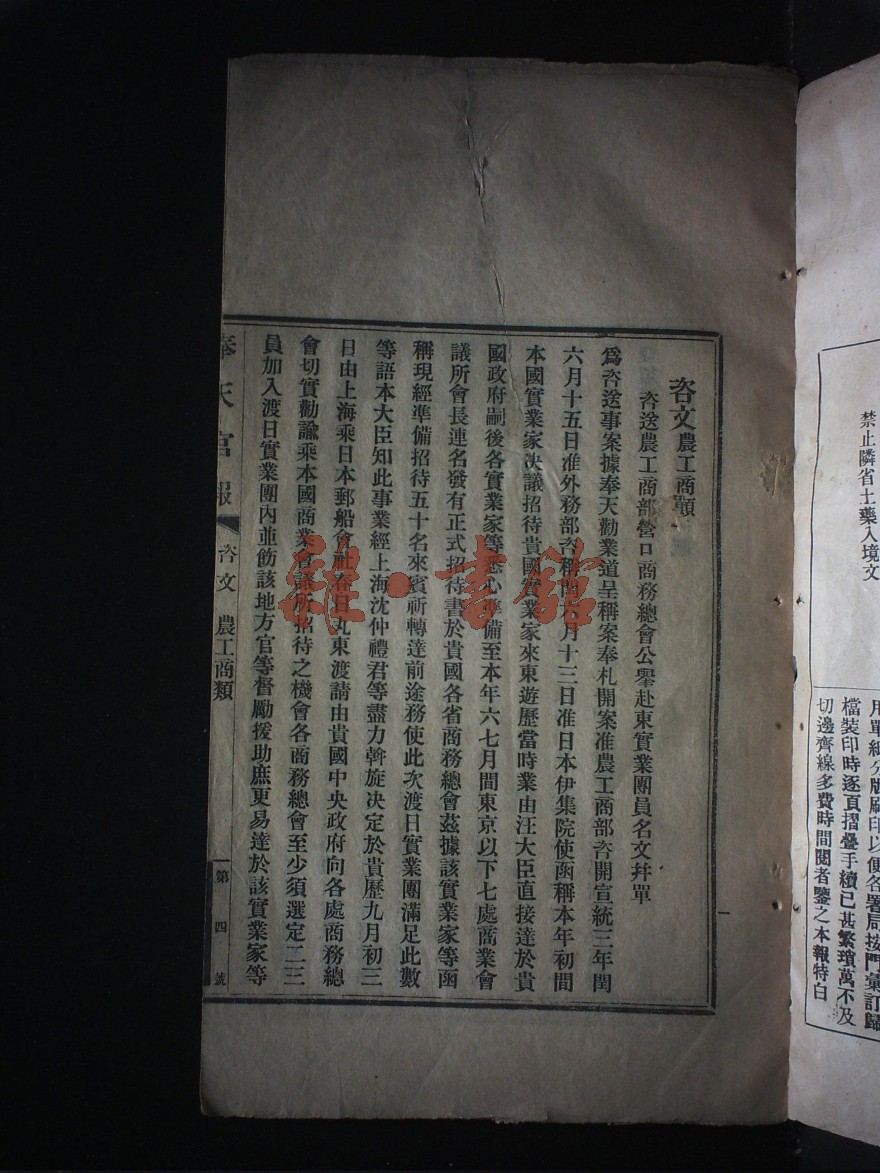 禁止隣省土藥入境文
用單紙分版刷印以便各署局按門彙訂歸
檔裝印時逐頁摺疊手續已甚繁瑣萬不及
切邊齊線多費時間閱者鑒之本報特白
咨文 農工商類
咨送農工商部營口商務總會公舉赴東實業團員名文幷單
爲咨送事案據奉天勸業道呈稱案奉札開案准農工商部咨開宣統三年閏
六月十五日准外務部咨稱閏六月十三日准日本伊集院使函稱本年初間
本國實業家決議招待貴國實業家來東遊歷當時業由汪大臣直接達於貴
國政府嗣後各實業家等悉心準備至本年六七月間東京以下七處商業會
議所會長連名發有正式招待書於貴國各省商務總會茲據該實業家等函
稱現經準備招待五十名來賓祈轉達前途務使此次渡日實業團滿足此數
等語本大臣知此事業經上海沈仲禮君等盡力斡旋决定於貴歷九月初三
日由上海乘日本郵船會社春日丸東渡請由貴國中央政府向各處商務總
會切實勸諭乘本國商業會議所招待之機會各商務總會至少須選定二三
員加入渡日實業團內並飭該地方官等督勵援助庶更易達於該實業家等
奉天官報 咨文 農工商類 第四號
一